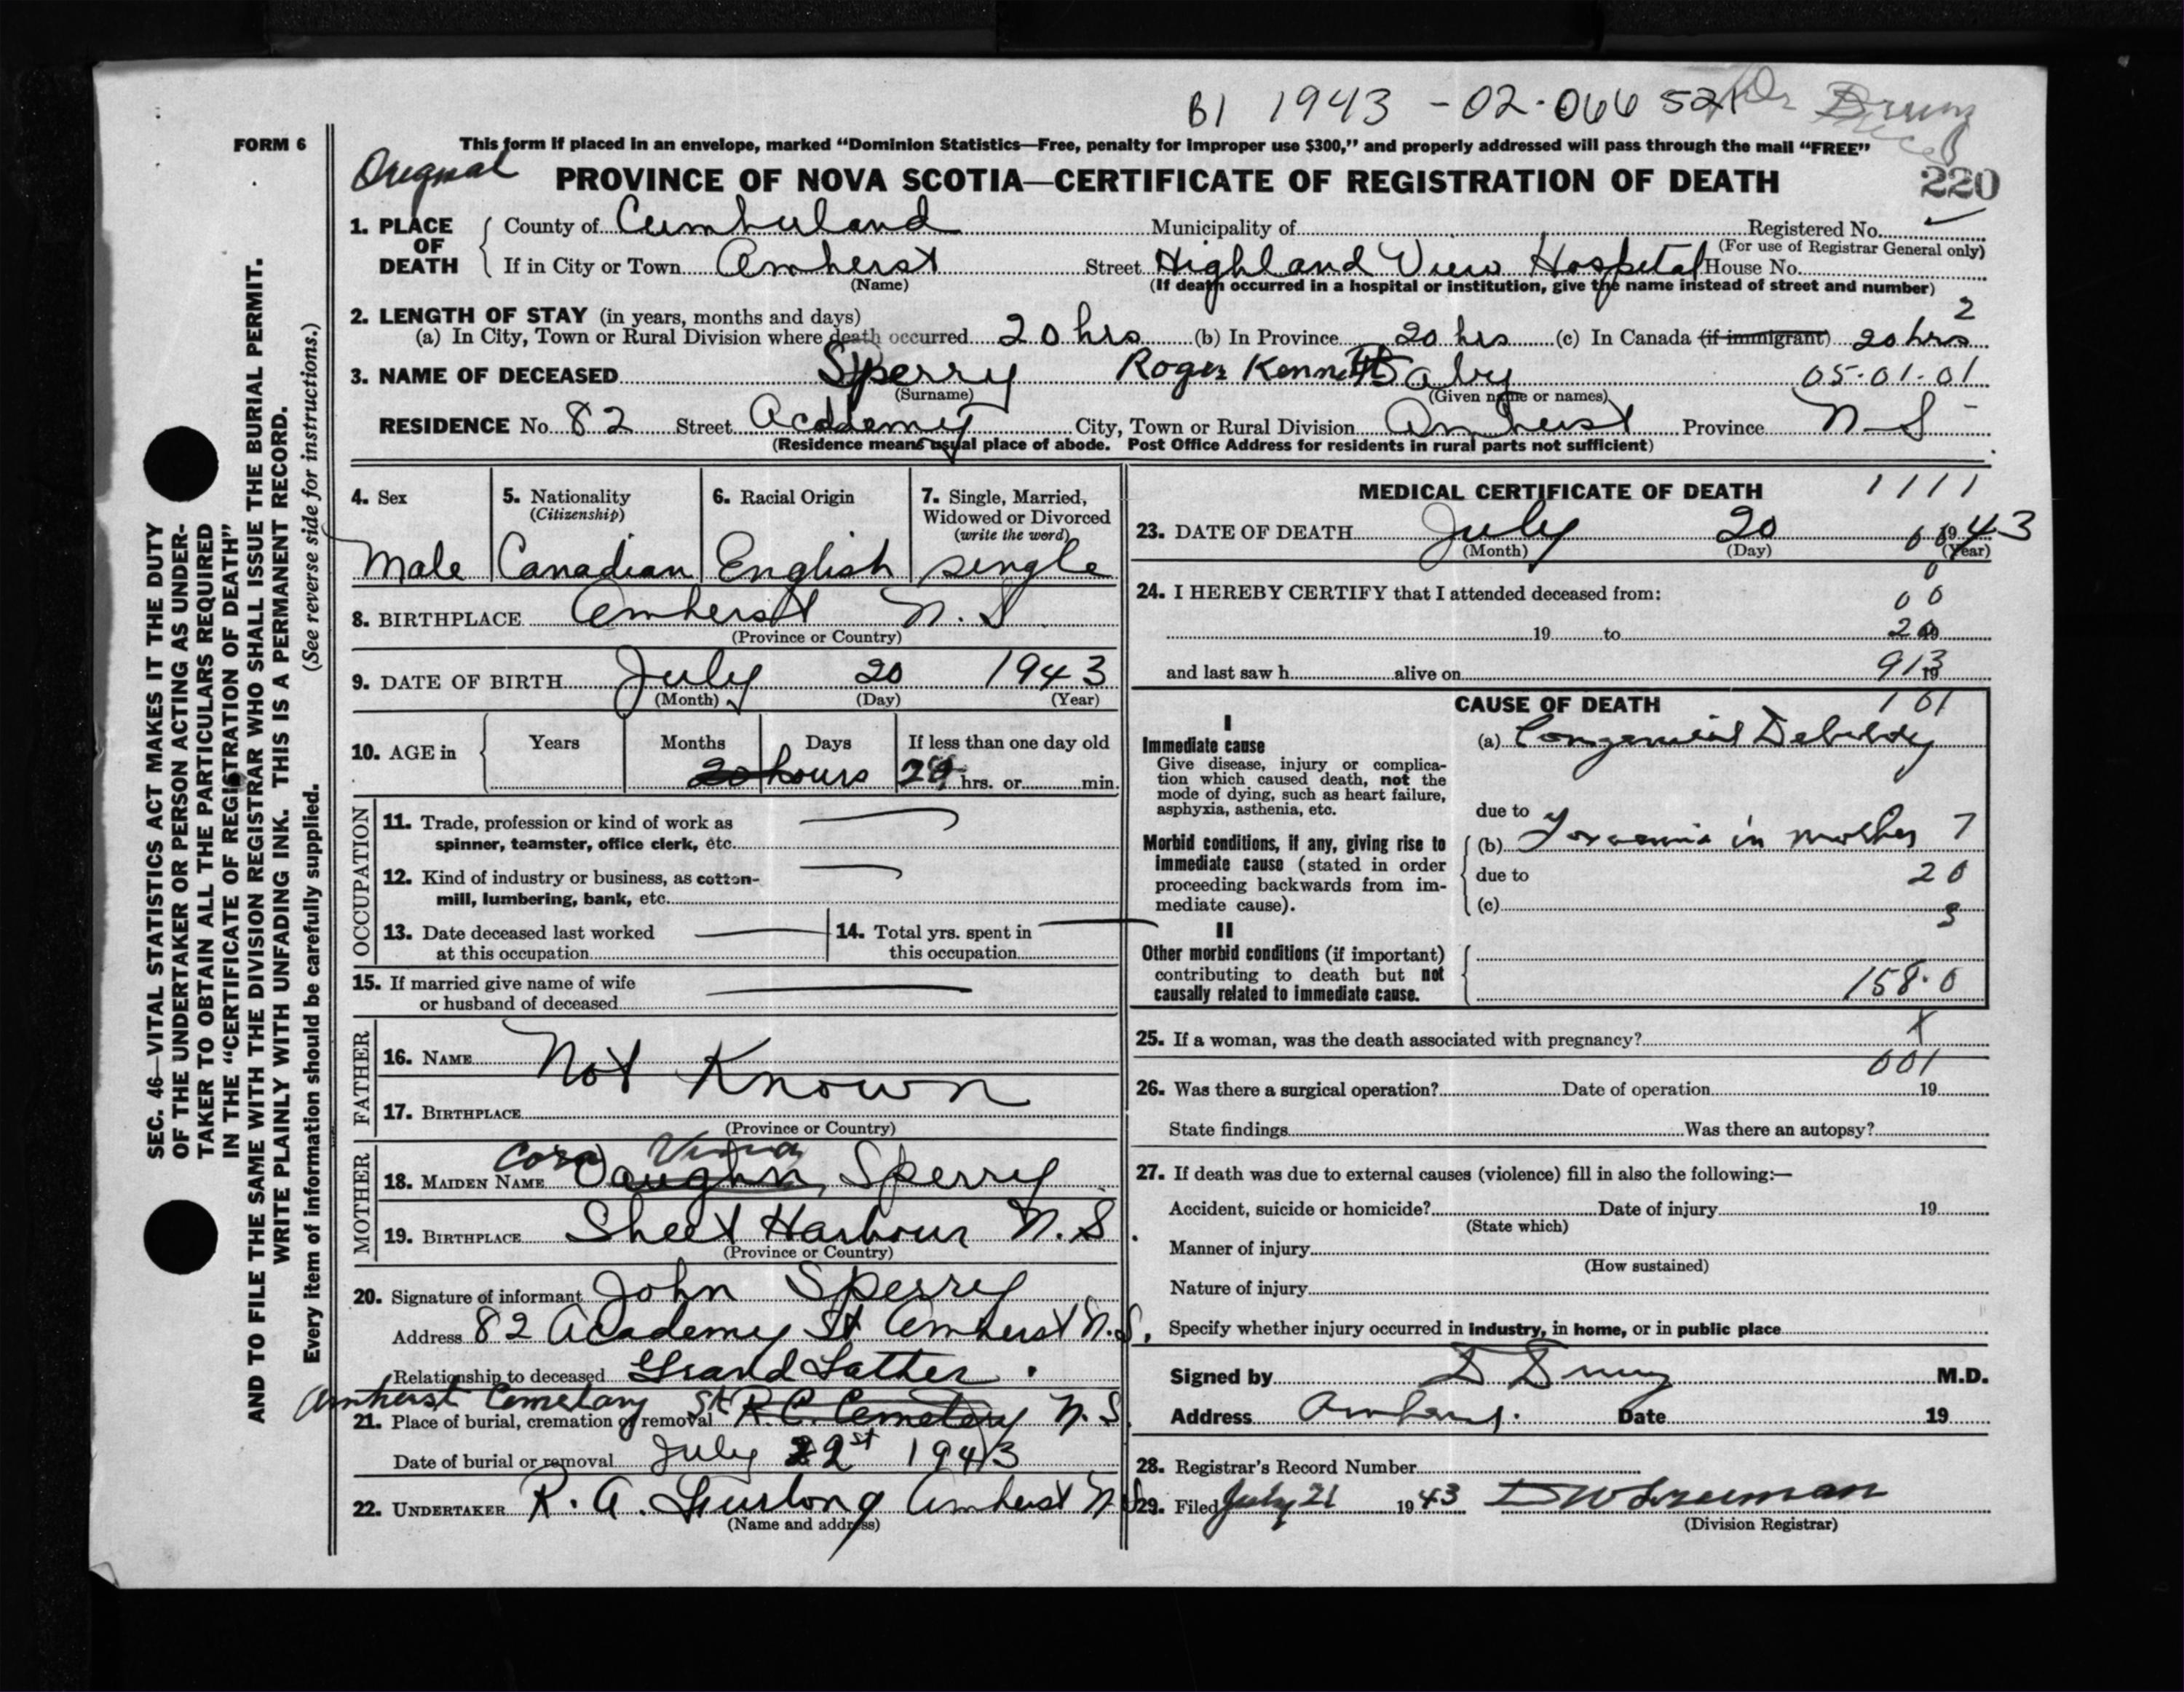 B1 1943 - 02-066521 Dr Drury
FORM 6
This form if placed in an envelope, marked “Dominion Statistics—Free, penalty for improper use $300,” and properly addressed will pass through the mail “FREE”
Original PROVINCE OF NOVA SCOTIA—CERTIFICATE OF REGISTRATION OF DEATH 220
1. PLACE OF DEATH { County of Cumberland Municipality of Registered No.
(For use of Registrar General only)
If in City or Town Amherst Street Highland View Hospital House No.
(Name) (If death occurred in a hospital or institution, give the name instead of street and number)
2. LENGTH OF STAY (in years, months and days) 2
(a) In City, Town or Rural Division where death occurred 20 hrs (b) In Province 20 hrs (c) In Canada (if immigrant) 20 hrs
3. NAME OF DECEASED Sperry Roger Kenneth Baby 05-01-01
(Surname) (Given name or names)
RESIDENCE No. 82 Street Academy City, Town or Rural Division Amherst Province N-S
(Residence means usual place of abode. Post Office Address for residents in rural parts not sufficient)
4. Sex 5. Nationality (Citizenship) 6. Racial Origin 7. Single, Married, Widowed or Divorced (write the word)
Male Canadian English single
8. BIRTHPLACE Amherst N.S
(Province or Country)
9. DATE OF BIRTH July 20 1943
(Month) (Day) (Year)
10. AGE in { Years Months Days If less than one day old
20 hours hrs. or min.
OCCUPATION
11. Trade, profession or kind of work as
spinner, teamster, office clerk, etc.
12. Kind of industry or business, as cotton-
mill, lumbering, bank, etc.
13. Date deceased last worked
at this occupation
14. Total yrs. spent in
this occupation
15. If married give name of wife
or husband of deceased
FATHER
16. NAME Not Known
17. BIRTHPLACE
(Province or Country)
MOTHER
Cora
18. MAIDEN NAME Vaughn Sperry
19. BIRTHPLACE Sheet Harbour N.S.
(Province or Country)
20. Signature of informant John Sperry
Address 82 Academy St Amherst N.S.
Relationship to deceased Grand Father.
Amherst Cemetary
21. Place of burial, cremation or removal St R.C. Cemetery N.S.
Date of burial or removal July 22st 1943
22. UNDERTAKER R. A. Furlong Amherst N.S
(Name and address)
MEDICAL CERTIFICATE OF DEATH 1111
23. DATE OF DEATH July 20 1943
(Month) (Day) (Year)
24. I HEREBY CERTIFY that I attended deceased from:
19 to 19
and last saw h alive on 19
913
CAUSE OF DEATH 101
I
Immediate cause
Give disease, injury or complica-
tion which caused death, not the
mode of dying, such as heart failure,
asphyxia, asthenia, etc.
(a) Congenital Debility
due to
Morbid conditions, if any, giving rise to
immediate cause (stated in order
proceeding backwards from im-
mediate cause).
(b) Toxaemia in mother 7
due to 20
(c) 3
II
Other morbid conditions (if important)
contributing to death but not
causally related to immediate cause.
158.0
25. If a woman, was the death associated with pregnancy? X
001
26. Was there a surgical operation? Date of operation 19
State findings Was there an autopsy?
27. If death was due to external causes (violence) fill in also the following:—
Accident, suicide or homicide? Date of injury 19
(State which)
Manner of injury
(How sustained)
Nature of injury
Specify whether injury occurred in industry, in home, or in public place
Signed by D Drury M.D.
Address Amherst. Date 19
28. Registrar's Record Number
29. Filed July 21 1943
(Division Registrar)
SEC. 46—VITAL STATISTICS ACT MAKES IT THE DUTY
OF THE UNDERTAKER OR PERSON ACTING AS UNDER-
TAKER TO OBTAIN ALL THE PARTICULARS REQUIRED
IN THE “CERTIFICATE OF REGISTRATION OF DEATH”
AND TO FILE THE SAME WITH THE DIVISION REGISTRAR WHO SHALL ISSUE THE BURIAL PERMIT.
WRITE PLAINLY WITH UNFADING INK. THIS IS A PERMANENT RECORD.
Every item of information should be carefully supplied. (See reverse side for instructions.)